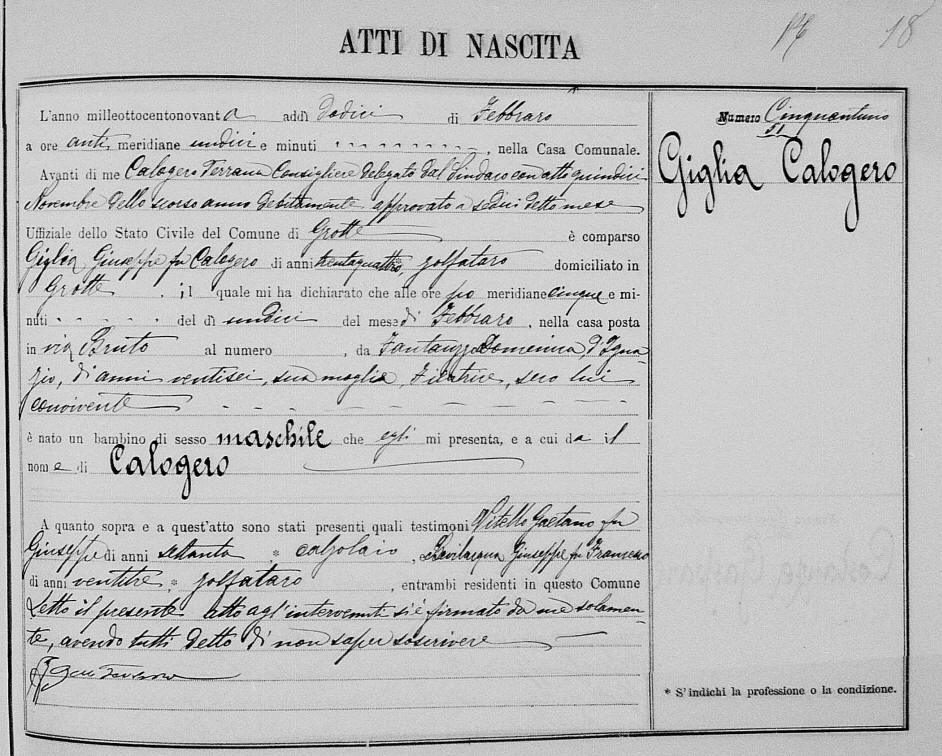 18
ATTI DI NASCITA
Numero Cinquantuno
51
Giglia Calogero
L'anno milleottocentonovanta addì dodici di Febbraro
a ore anti meridiane undici e minuti , nella Casa Comunale.
Avanti di me Calogero Terrana Consigliere delegato dal Sindaco con atto quindici
Novembre dello scorso anno debitamente approvato a sedici detto mese
Uffiziale dello Stato Civile del Comune di Grotte è comparso
Giglia Giuseppe fu Calogero di anni trentaquattro, zolfataro domiciliato in
Grotte ; il quale mi ha dichiarato che alle ore po meridiane cinque e mi-
nuti del dì undici del mese di Febbraro, nella casa posta
in via Bruto al numero , da Fantauzzo Domenica, d'Igna
zio, di anni ventisei, sua moglie, filatrice, seco lui
convivente
è nato un bambino di sesso maschile che egli mi presenta, e a cui da il
nome di Calogero
A quanto sopra e a quest'atto sono stati presenti quali testimoni Vitello Gaetano fu
Giuseppe di anni settanta * calzolaio, Bevilacqua Giuseppe fu Francesco
di anni ventitre * zolfataro , entrambi residenti in questo Comune
Letto il presente atto agl'intervenuti si è firmato da me solamen-
te, avendo tutti detto di non saper soscrivere
* S'indichi la professione o la condizione.